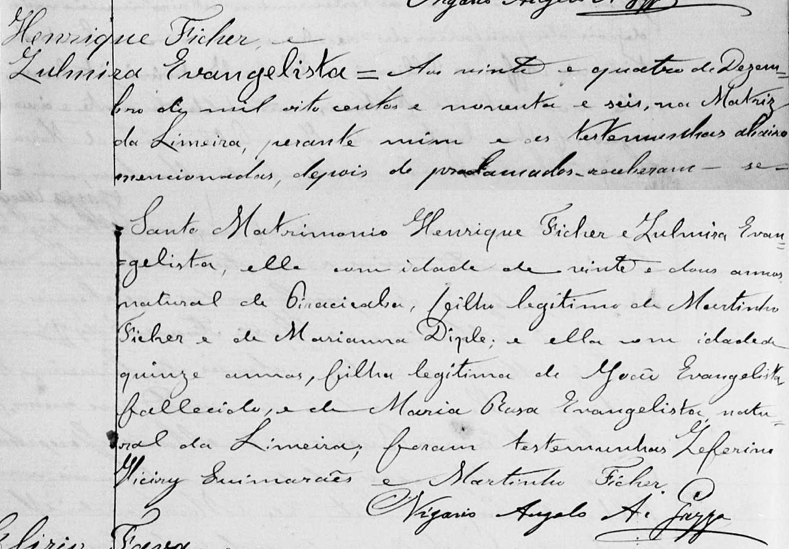 Vigario Angelo
Henrique Ficher, e
Zulmira Evangelista = Aos vinte e quatro de Dezem-
bro de mil oito centos e noventa e seis, na Matriz
da Limeira, perante mim e as testemunhas abaixo
mencionadas, depois de proclamados receberam - se -
Santo Matrimonio Henrique Ficher e Zulmira Evan=
=gelista, elle com idade de vinte e dous annos
natural de Piracicaba, filho legitimo de Martinho
Ficher e de Marianna Diple; e ella com idade de
quinze annos, filha legitima de João Evangelista
fallecido, e de Maria Rosa Evangelista natu-
ral da Limeira; foram testemunhas Zeferino
Guimarães e Martinho Ficher
Vigario Angelo
Fava